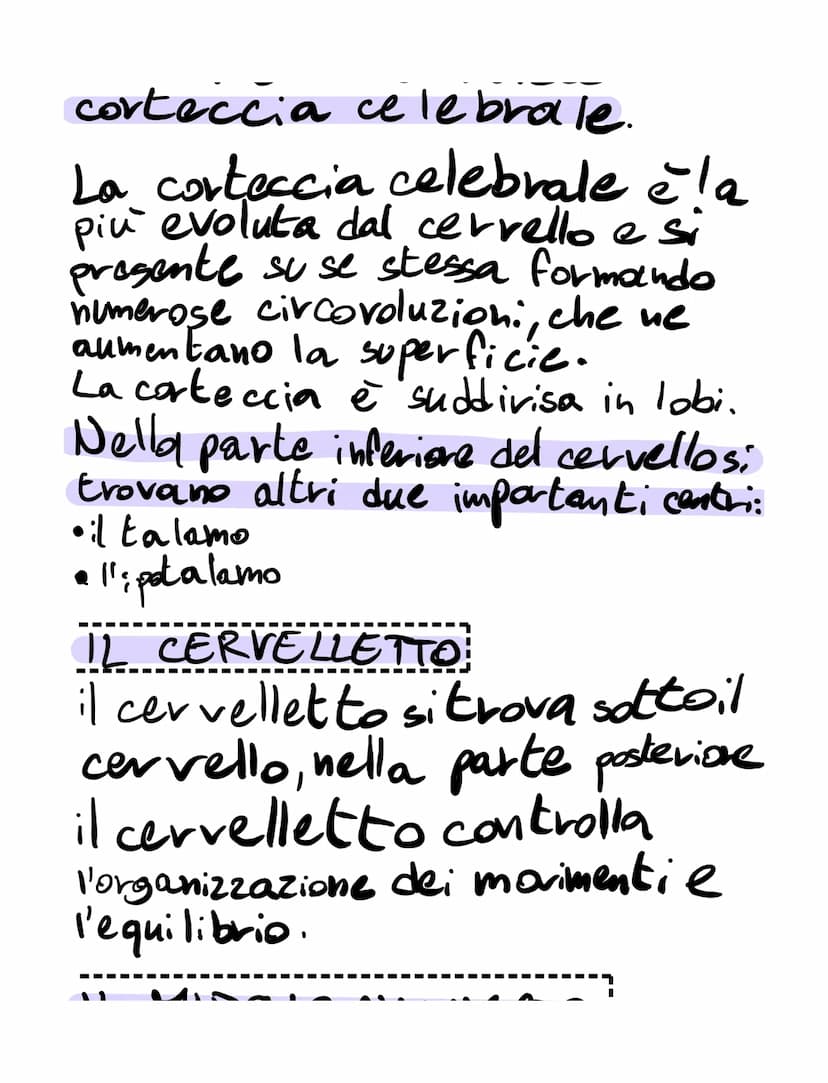 corteccia celebrale.
La corteccia celebrale è la
più evoluta dal cervello e si
presente su se stessa formando
numerose circovoluzioni, che ne
aumentano la superficie.
La corteccia è suddivisa in lobi.
Nella parte inferiore del cervello si
trovano altri due importanti centri:
• il talamo
• l'ipotalamo
IL CERVELLETTO
il cervelletto si trova sotto il
cervello, nella parte posteriore
il cervelletto controlla
l'organizzazione dei movimenti e
l'equilibrio.